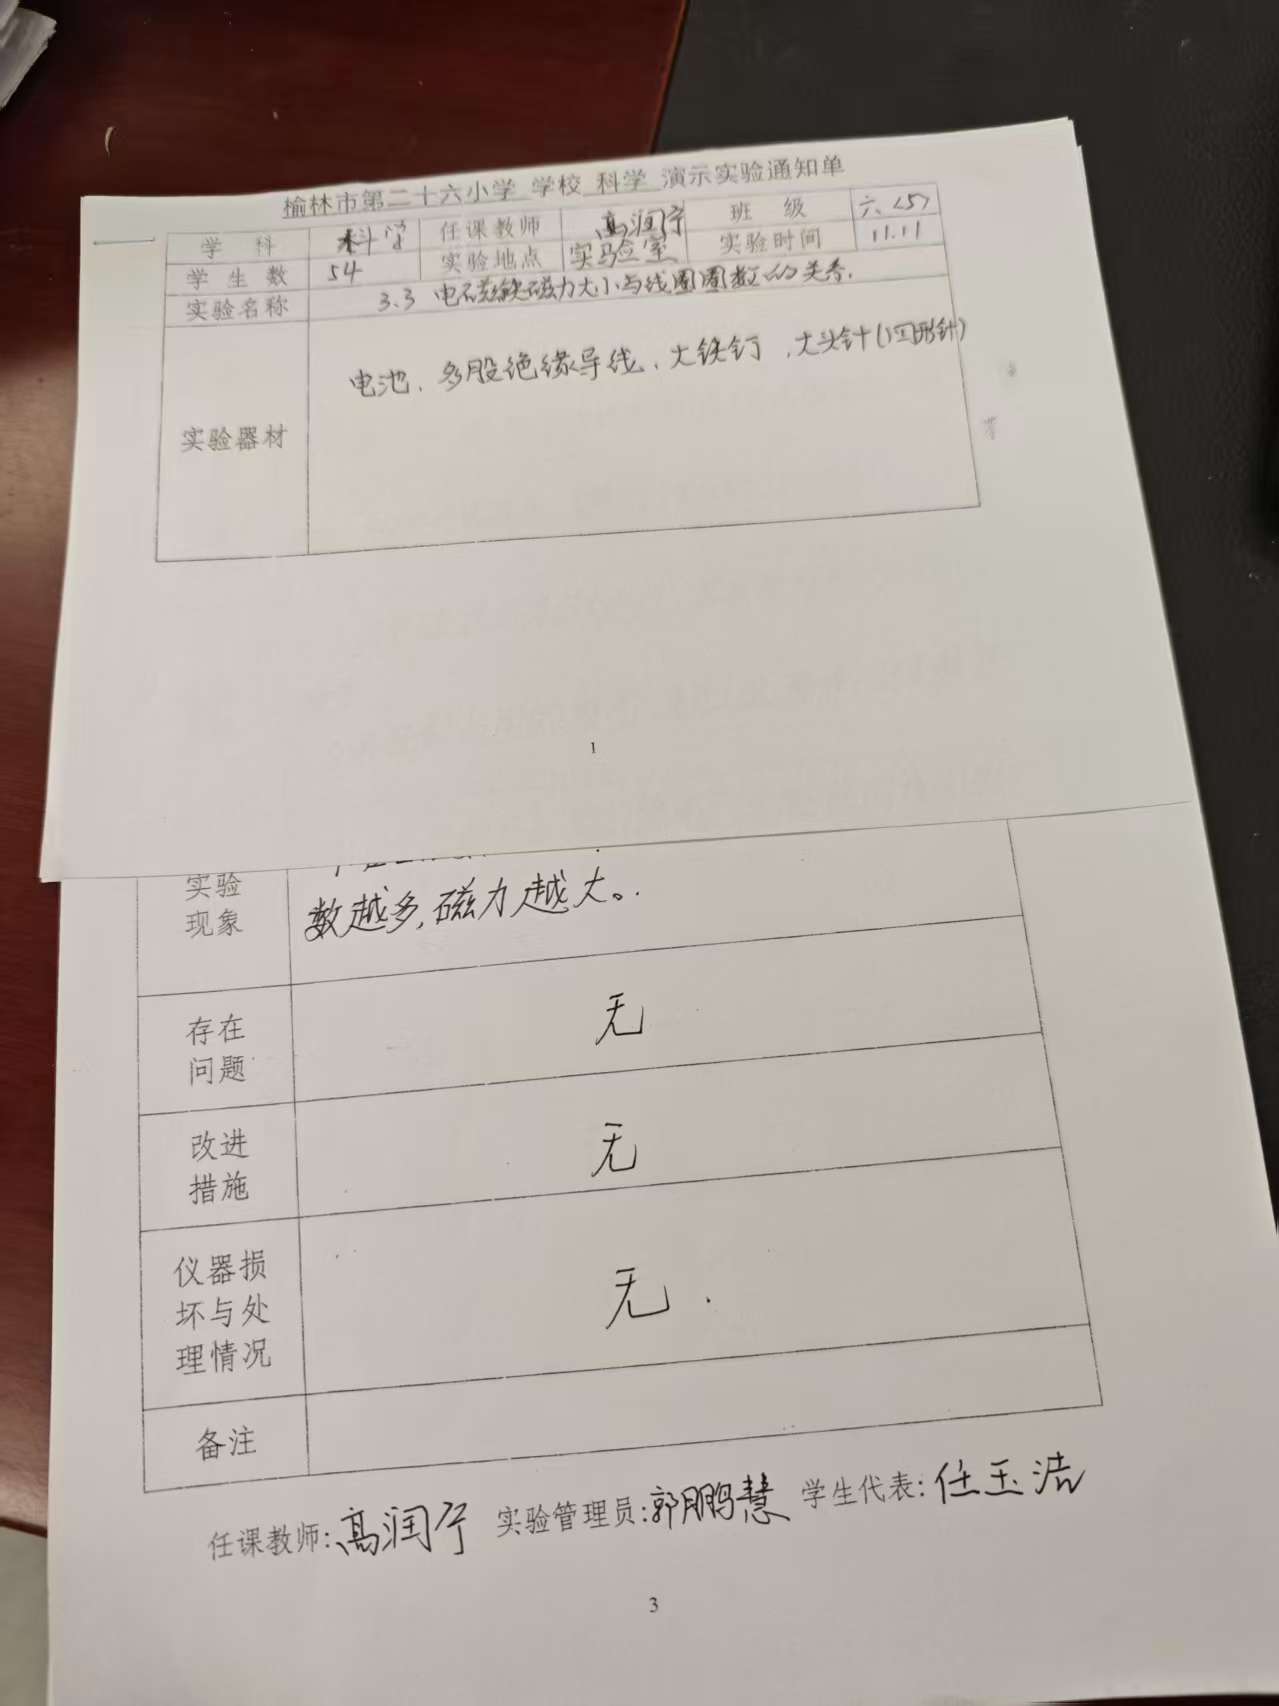 榆林市第二十六小学 学校 科学 演示实验通知单
学 科 科学 任课教师 高润宁 班 级 六、〈5〉
学 生 数 54 实验地点 实验室 实验时间 11.11
实验名称 3.3 电磁铁磁力大小与线圈圈数的关系.
实验器材 电池、多股绝缘导线、大铁钉、大头针(回形针)
1
实验
现象
数越多,磁力越大。
存在
问题
无
改进
措施
无
仪器损
坏与处
理情况
无.
备注
任课教师:高润宁 实验管理员:郭鹏慧 学生代表:任玉洁
3